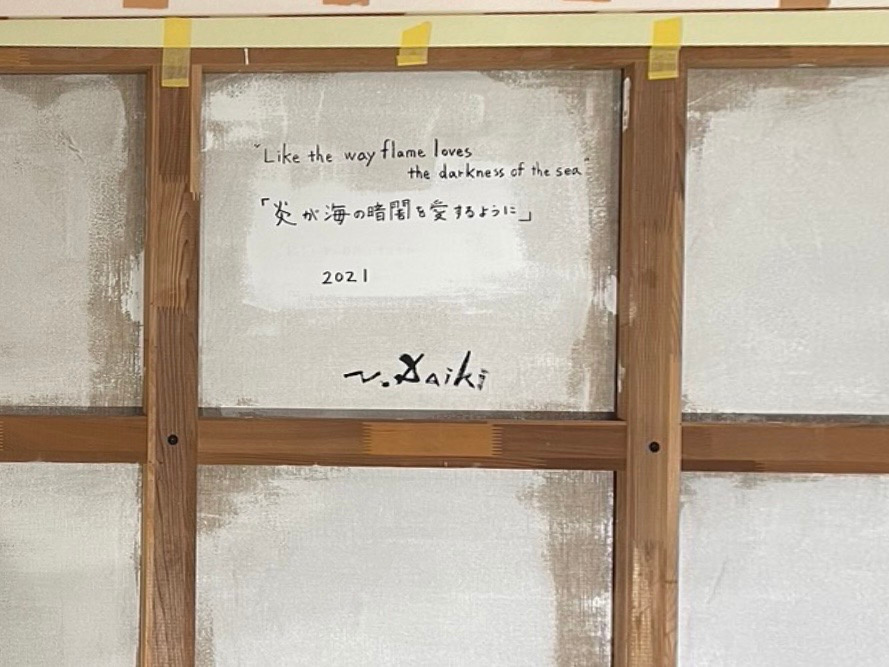 "Like the way flame loves
the darkness of the sea"
「炎が海の暗闇を愛するように」
2021
Saiki